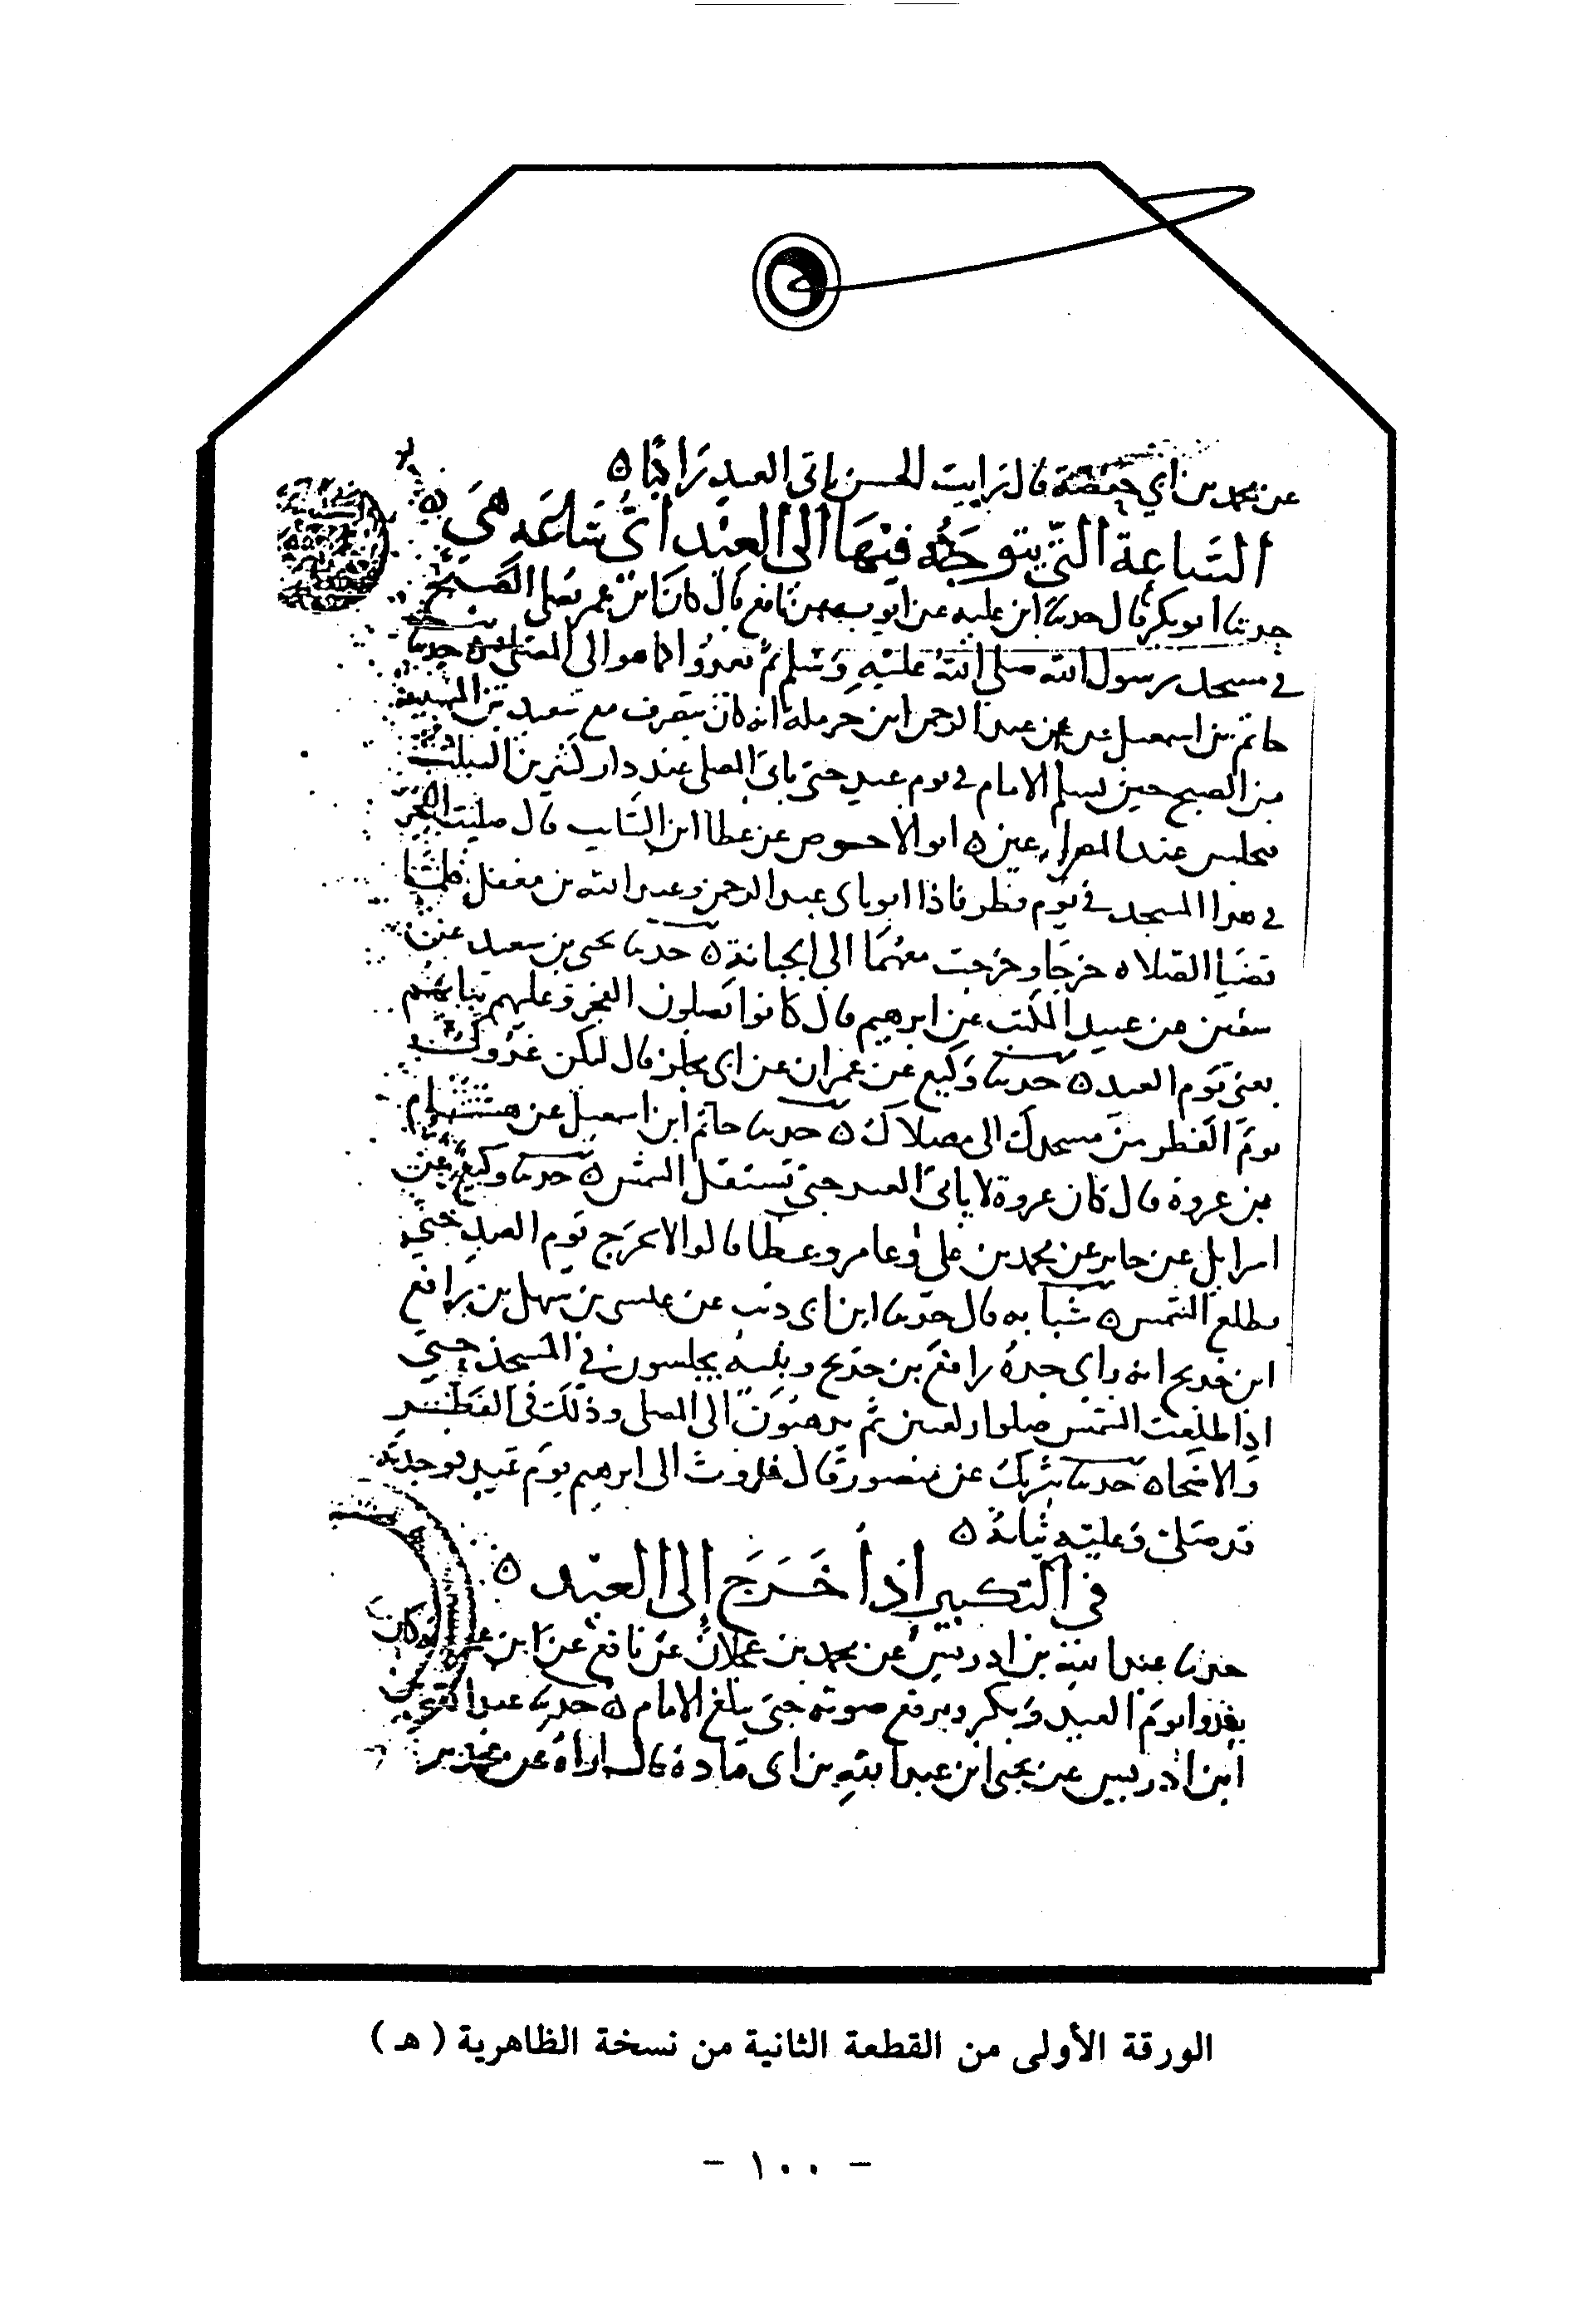 عن محمد بن ابي حفصة قال رايت الحسن ياتي العيد راكبا ه
الساعة التي يتوجه فيها الى العيد اي ساعة هي ه
حدثنا ابو بكر قال حدثنا ابن علية عن ايوب عن نافع قال كان ابن عمر يصلي الصبح
في مسجد رسول الله صلى الله عليه وسلم ثم يغدوا كما هو الى المصلى ه حدثنا
حاتم بن اسمعيل عن عبد الرحمن ابن حرملة انه كان ينصرف مع سعيد بن المسيب
من الصبح حين يسلم الامام في يوم عيد حتى ياتي المصلى عند دار كثير بن الصلت
فيجلس عند المصراعين ه ابو الاحوص عن عطا ابن السايب قال صليت الفجر
في هذا المسجد في يوم فطر فاذا ابو عبد الرحمن وعبد الله بن معقل فلما
قضيا الصلاه خرجا وخرجت معهما الى الجبانة ه حدثنا يحيى بن سعيد عن
سفين عن عبيد المكتب عن ابرهيم قال كانوا يصلون الفجر وعليهم ثيابهم
يعني يوم العيد ه حدثنا وكيع عن عمران عن ابي مجلز قال ليكن غدوك
يوم الفطر من مسجدك الى مصلاك ه حدثنا حاتم ابن اسمعيل عن هشام
بن عروة قال كان عروة لا ياتي العيد حتى تستقل الشمس ه حدثنا وكيع عن
اسرايل عن جابر عن محمد بن علي وعامر وعطا قالوا لا تخرج يوم العيد حتى
تطلع الشمس ه شبابه قال حدثنا ابن ابي ذئب عن عيسى بن سهل بن رافع
ابن خديج انه راى جده رافع بن خديج وبنيه يجلسون في المسجد حتى
اذا طلعت الشمس صلوا ركعتين ثم يذهبون الى المصلى وذلك في الفطر
والاضحى ه حدثنا شريك عن منصور قال غدوت الى ابرهيم يوم عيد فوجدته
قد صلى وعليه ثيابه ه
في التكبير اذا خرج إلى العيد ه
حدثنا عبد الله بن ادريس عن محمد بن عجلان عن نافع عن ابن عمر انه كان
يغدوا يوم العيد ويكبر ويرفع صوته حتى يبلغ الامام ه حدثنا عبد الله
ابن ادريس عن يحيى ابن عبد الله بن ابي قتادة قال اراه عن محمد بن
الورقة الأولى من القطعة الثانية من نسخة الظاهرية ( هـ )
- ١٠٠ -